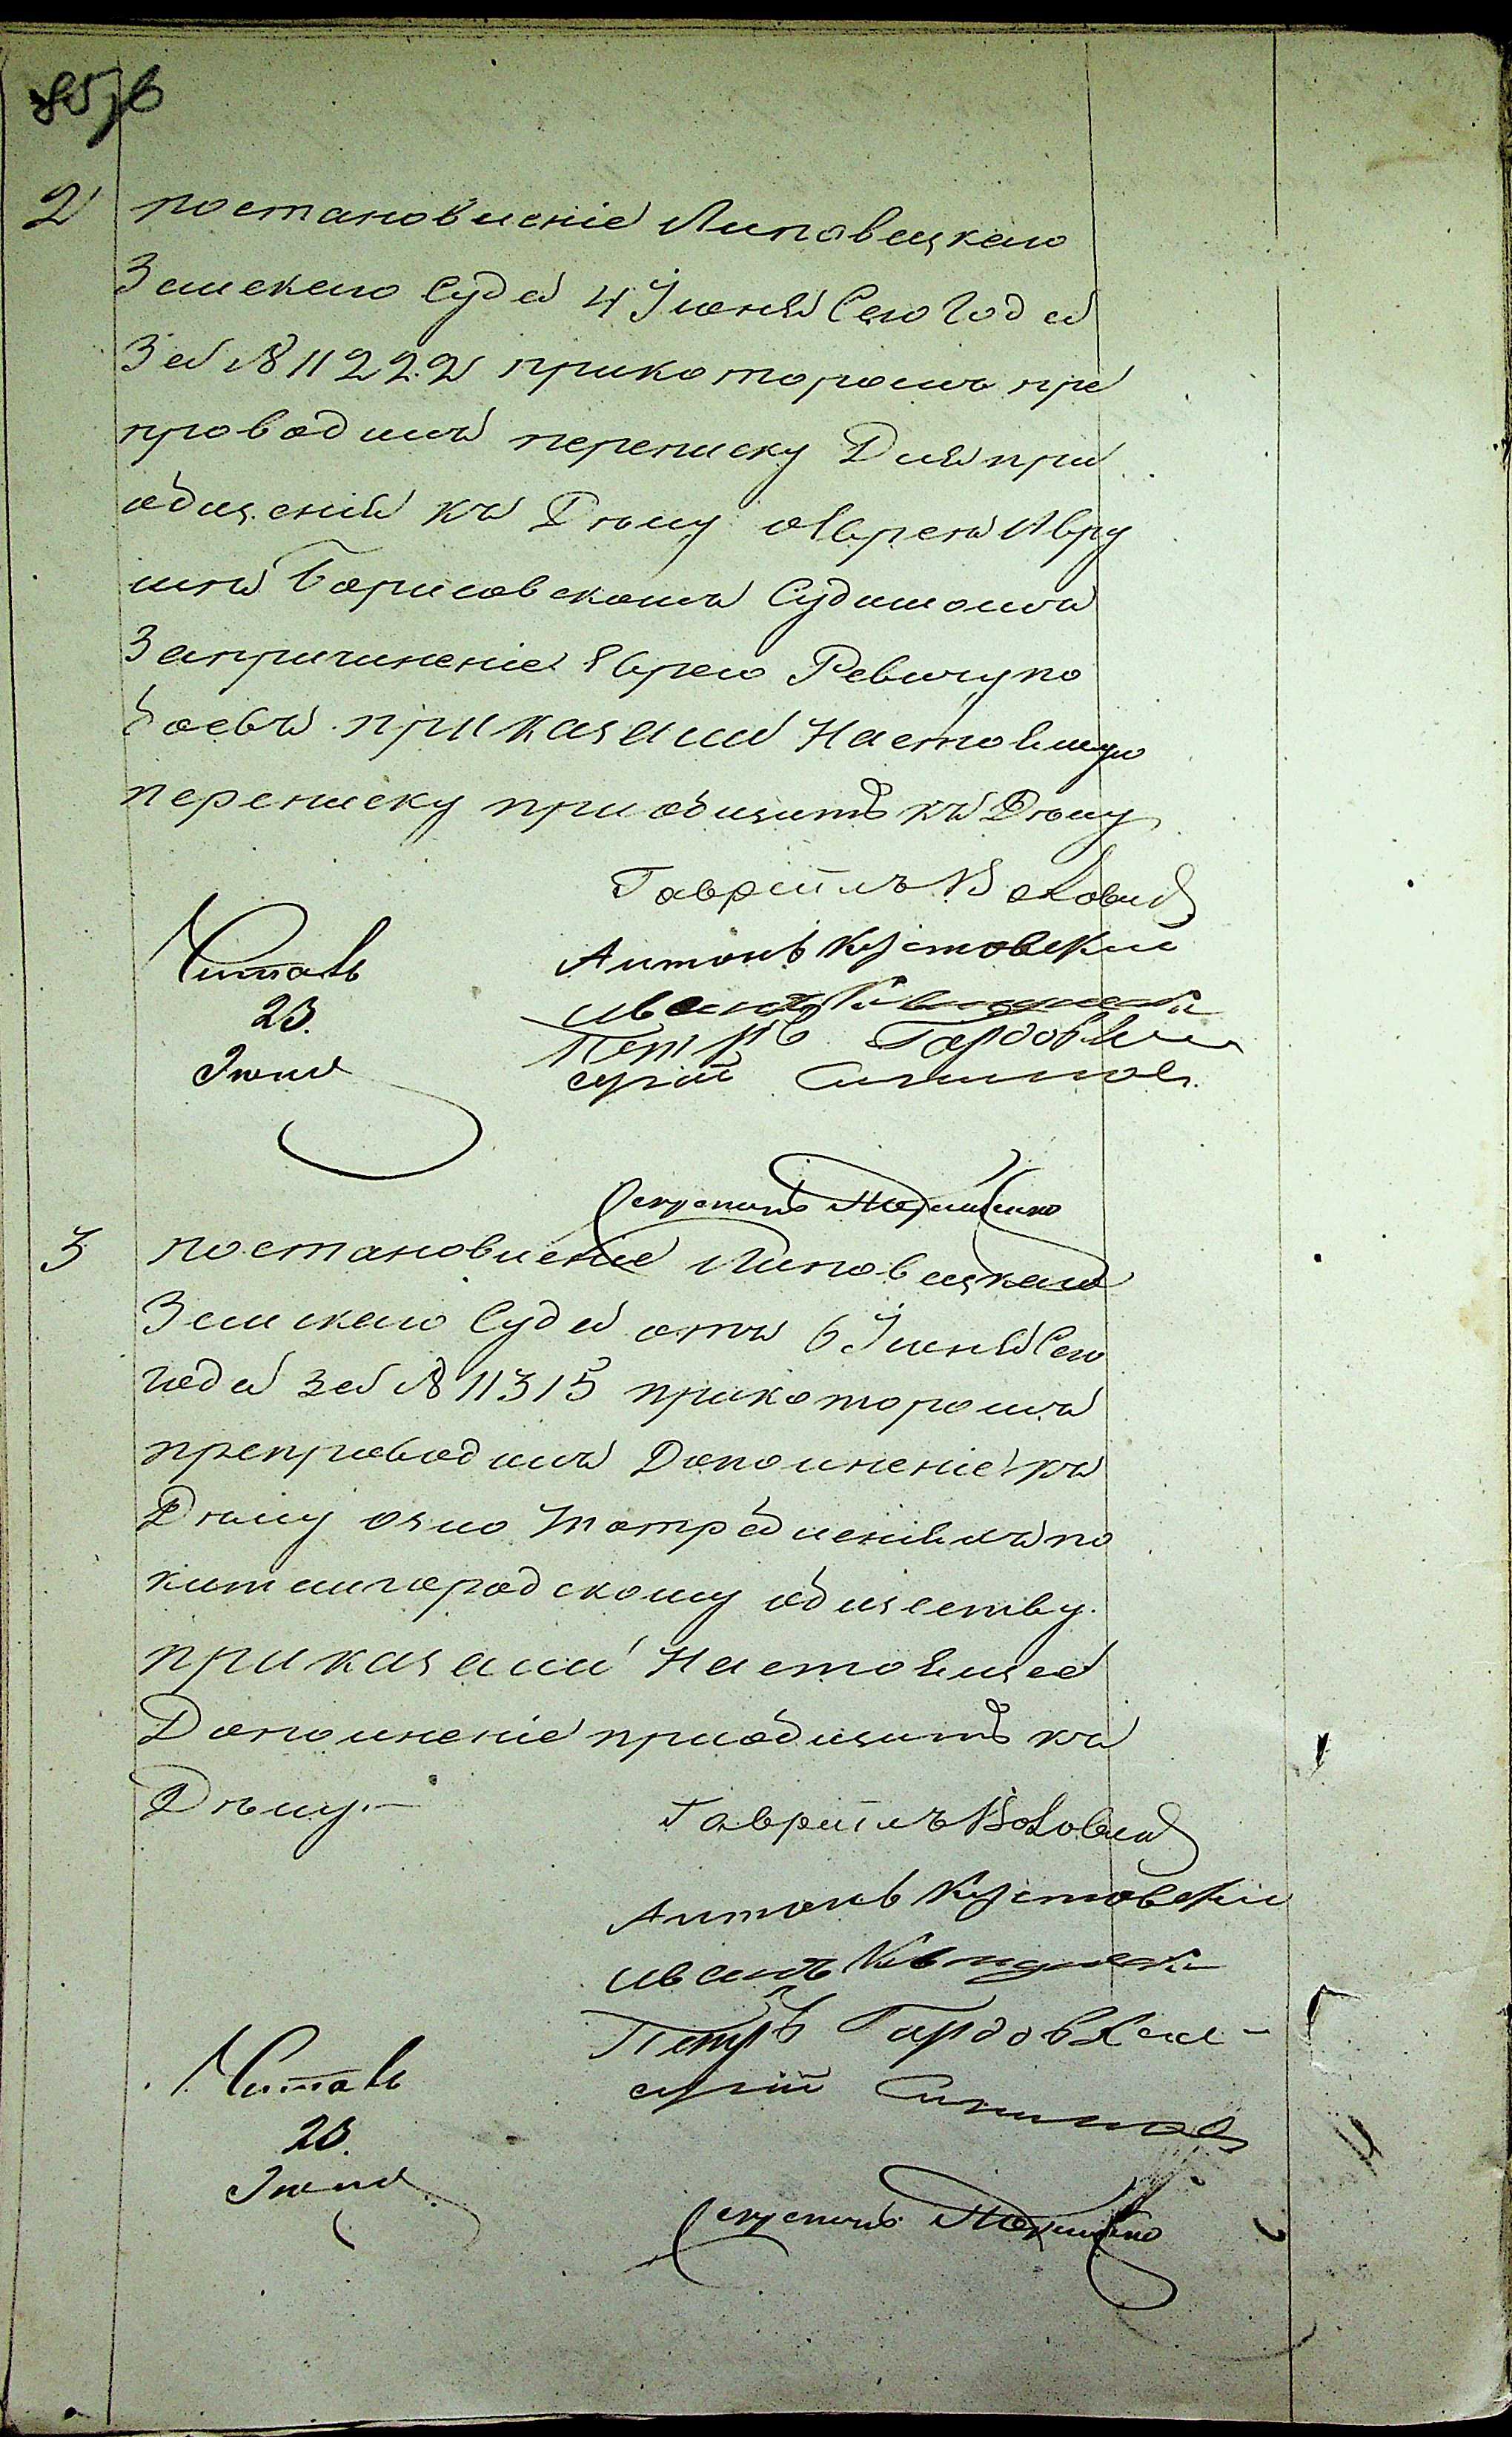 2 постановленіе Липовецкаго
Земскаго Суда 4 Іюня Сего Года
За № 11222 прикоторомъ пре
проводилъ переписку Для при
общенія къ Дѣлу о Евреѣ Авру
мѣ Борисовскомъ Судимомъ
Запричиненіе Еврею Ревичу по
боевъ. приказали Настоящую
переписку приобщить къ Дѣлу
Гавріилъ
Антонъ Кустовскій
Иванъ
Читалъ
23.
Іюня
Петръ
Секретарь
3 постановленіе Липовецкаго
Земскаго Суда отъ 6 Іюня Сего
года за № 11315 прикоторомъ
препроводилъ Дополненіе къ
Дѣлу о
китайгородскому обществу.
приказали Настоящее
Дополненіе приобщить къ
Дѣлу.—
Гавріилъ
Антонъ Кустовскій
Иванъ
Петръ
Читалъ
23.
Іюня
Секретарь